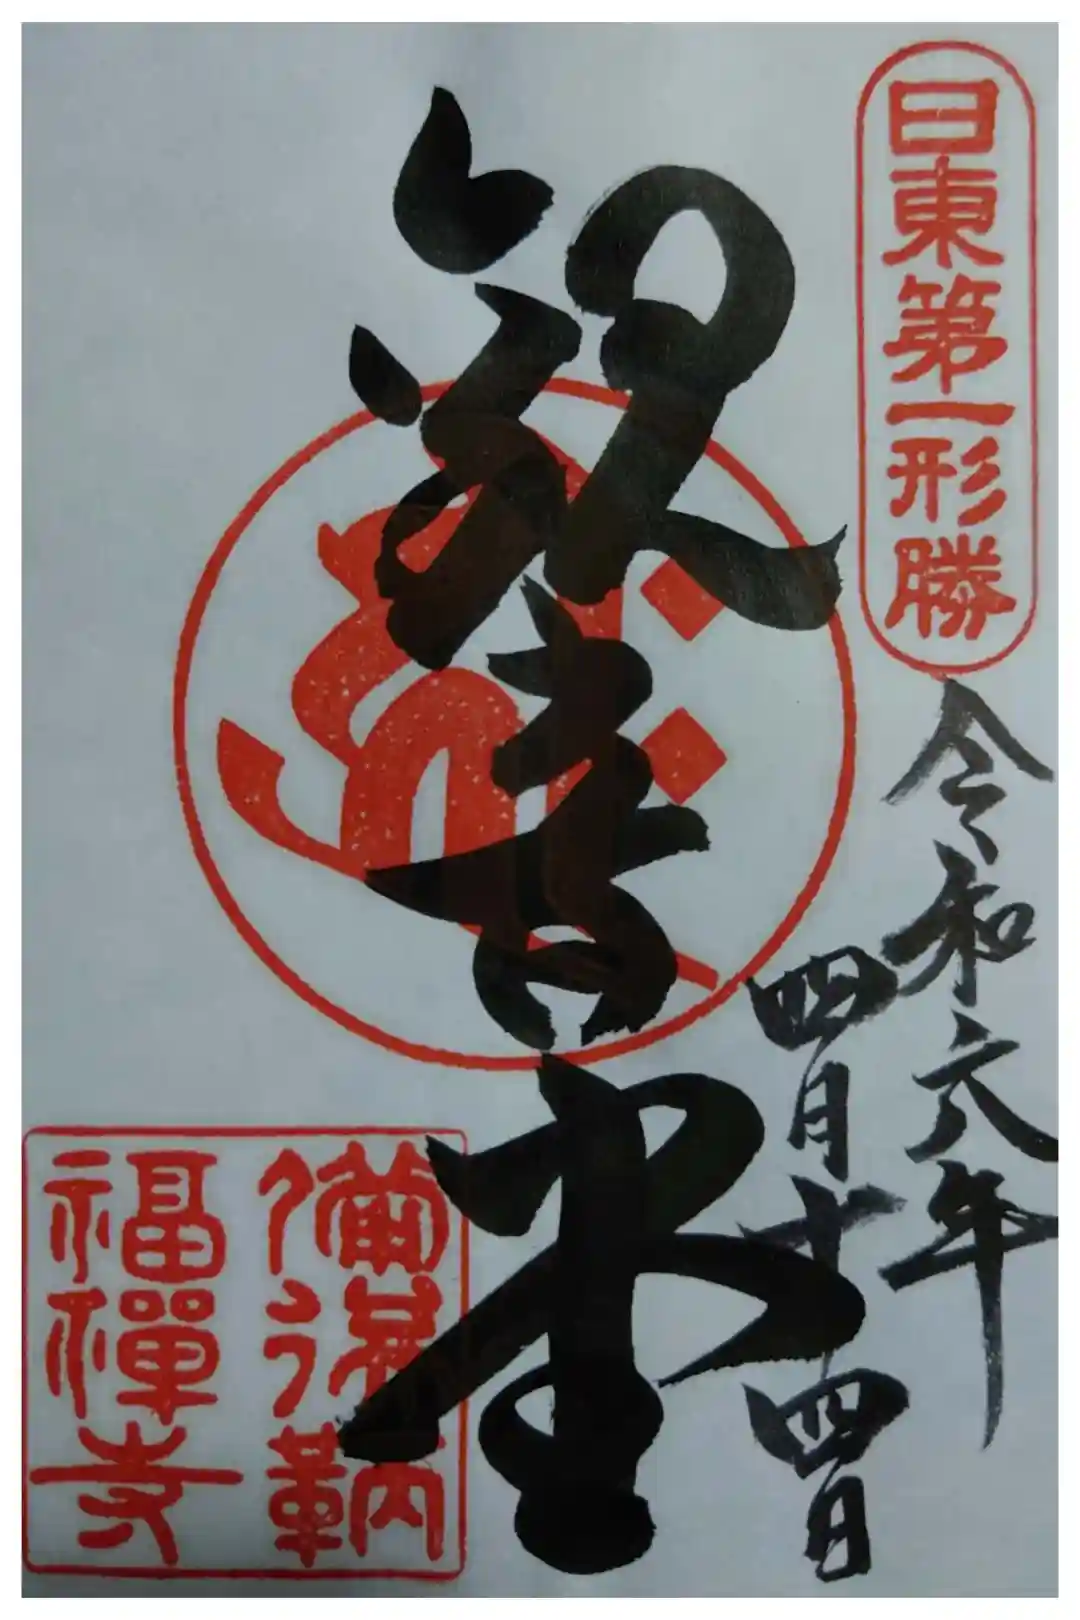 日東第一形勝
令和六年
四月十四日
観音堂
備後鞆
福禪寺